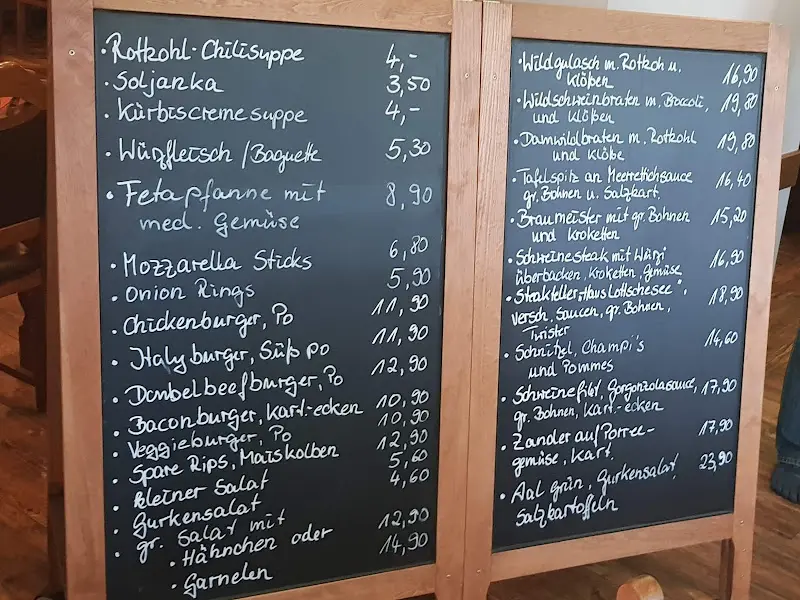 · Rotkohl-Chilisuppe 4,-
· Soljanka 3,50
· Kürbiscremesuppe 4,-
· Würzfleisch / Baguette 5,30
· Fetapfanne mit 8,90
med. Gemüse
· Mozzarella Sticks 6,80
· Onion Rings 5,90
· Chickenburger, Po 11,90
· Italyburger, Süß po 11,90
· Doubelbeefburger, Po 12,90
· Baconburger, Kart.-ecken 10,90
· Veggieburger, Po 10,90
· Spare Rips, Maiskolben 12,90
· kleiner Salat 5,60
· Gurkensalat 4,60
· gr. Salat mit
· Hähnchen oder 12,90
· Garnelen 14,90
· Wildgulasch m. Rotkoh u. 16,90
Klößen
· Wildschweinbraten m. Broccoli, 19,80
und Klößen
· Damwildbraten m. Rotkohl 19,80
und Klöße
· Tafelspitz an Meerrettichsauce 16,40
gr. Bohnen u. Salzkart.
· Braumeister mit gr. Bohnen 15,20
und Kroketten
· Schweinesteak mit Würzfl 16,90
überbacken, Kroketten, Gemüse
· Steakteller "Haus Lottschesee", 18,90
versch. Saucen, gr. Bohnen,
Twister
· Schnitzel, Champi's 14,60
und Pommes
· Schweinefilet, Gorgonzolasauce, 17,90
gr. Bohnen, Kart.-ecken
· Zander auf Porree- 17,90
gemüse, Kart.
· Aal grün, Gurkensalat 23,90
Salzkartoffeln